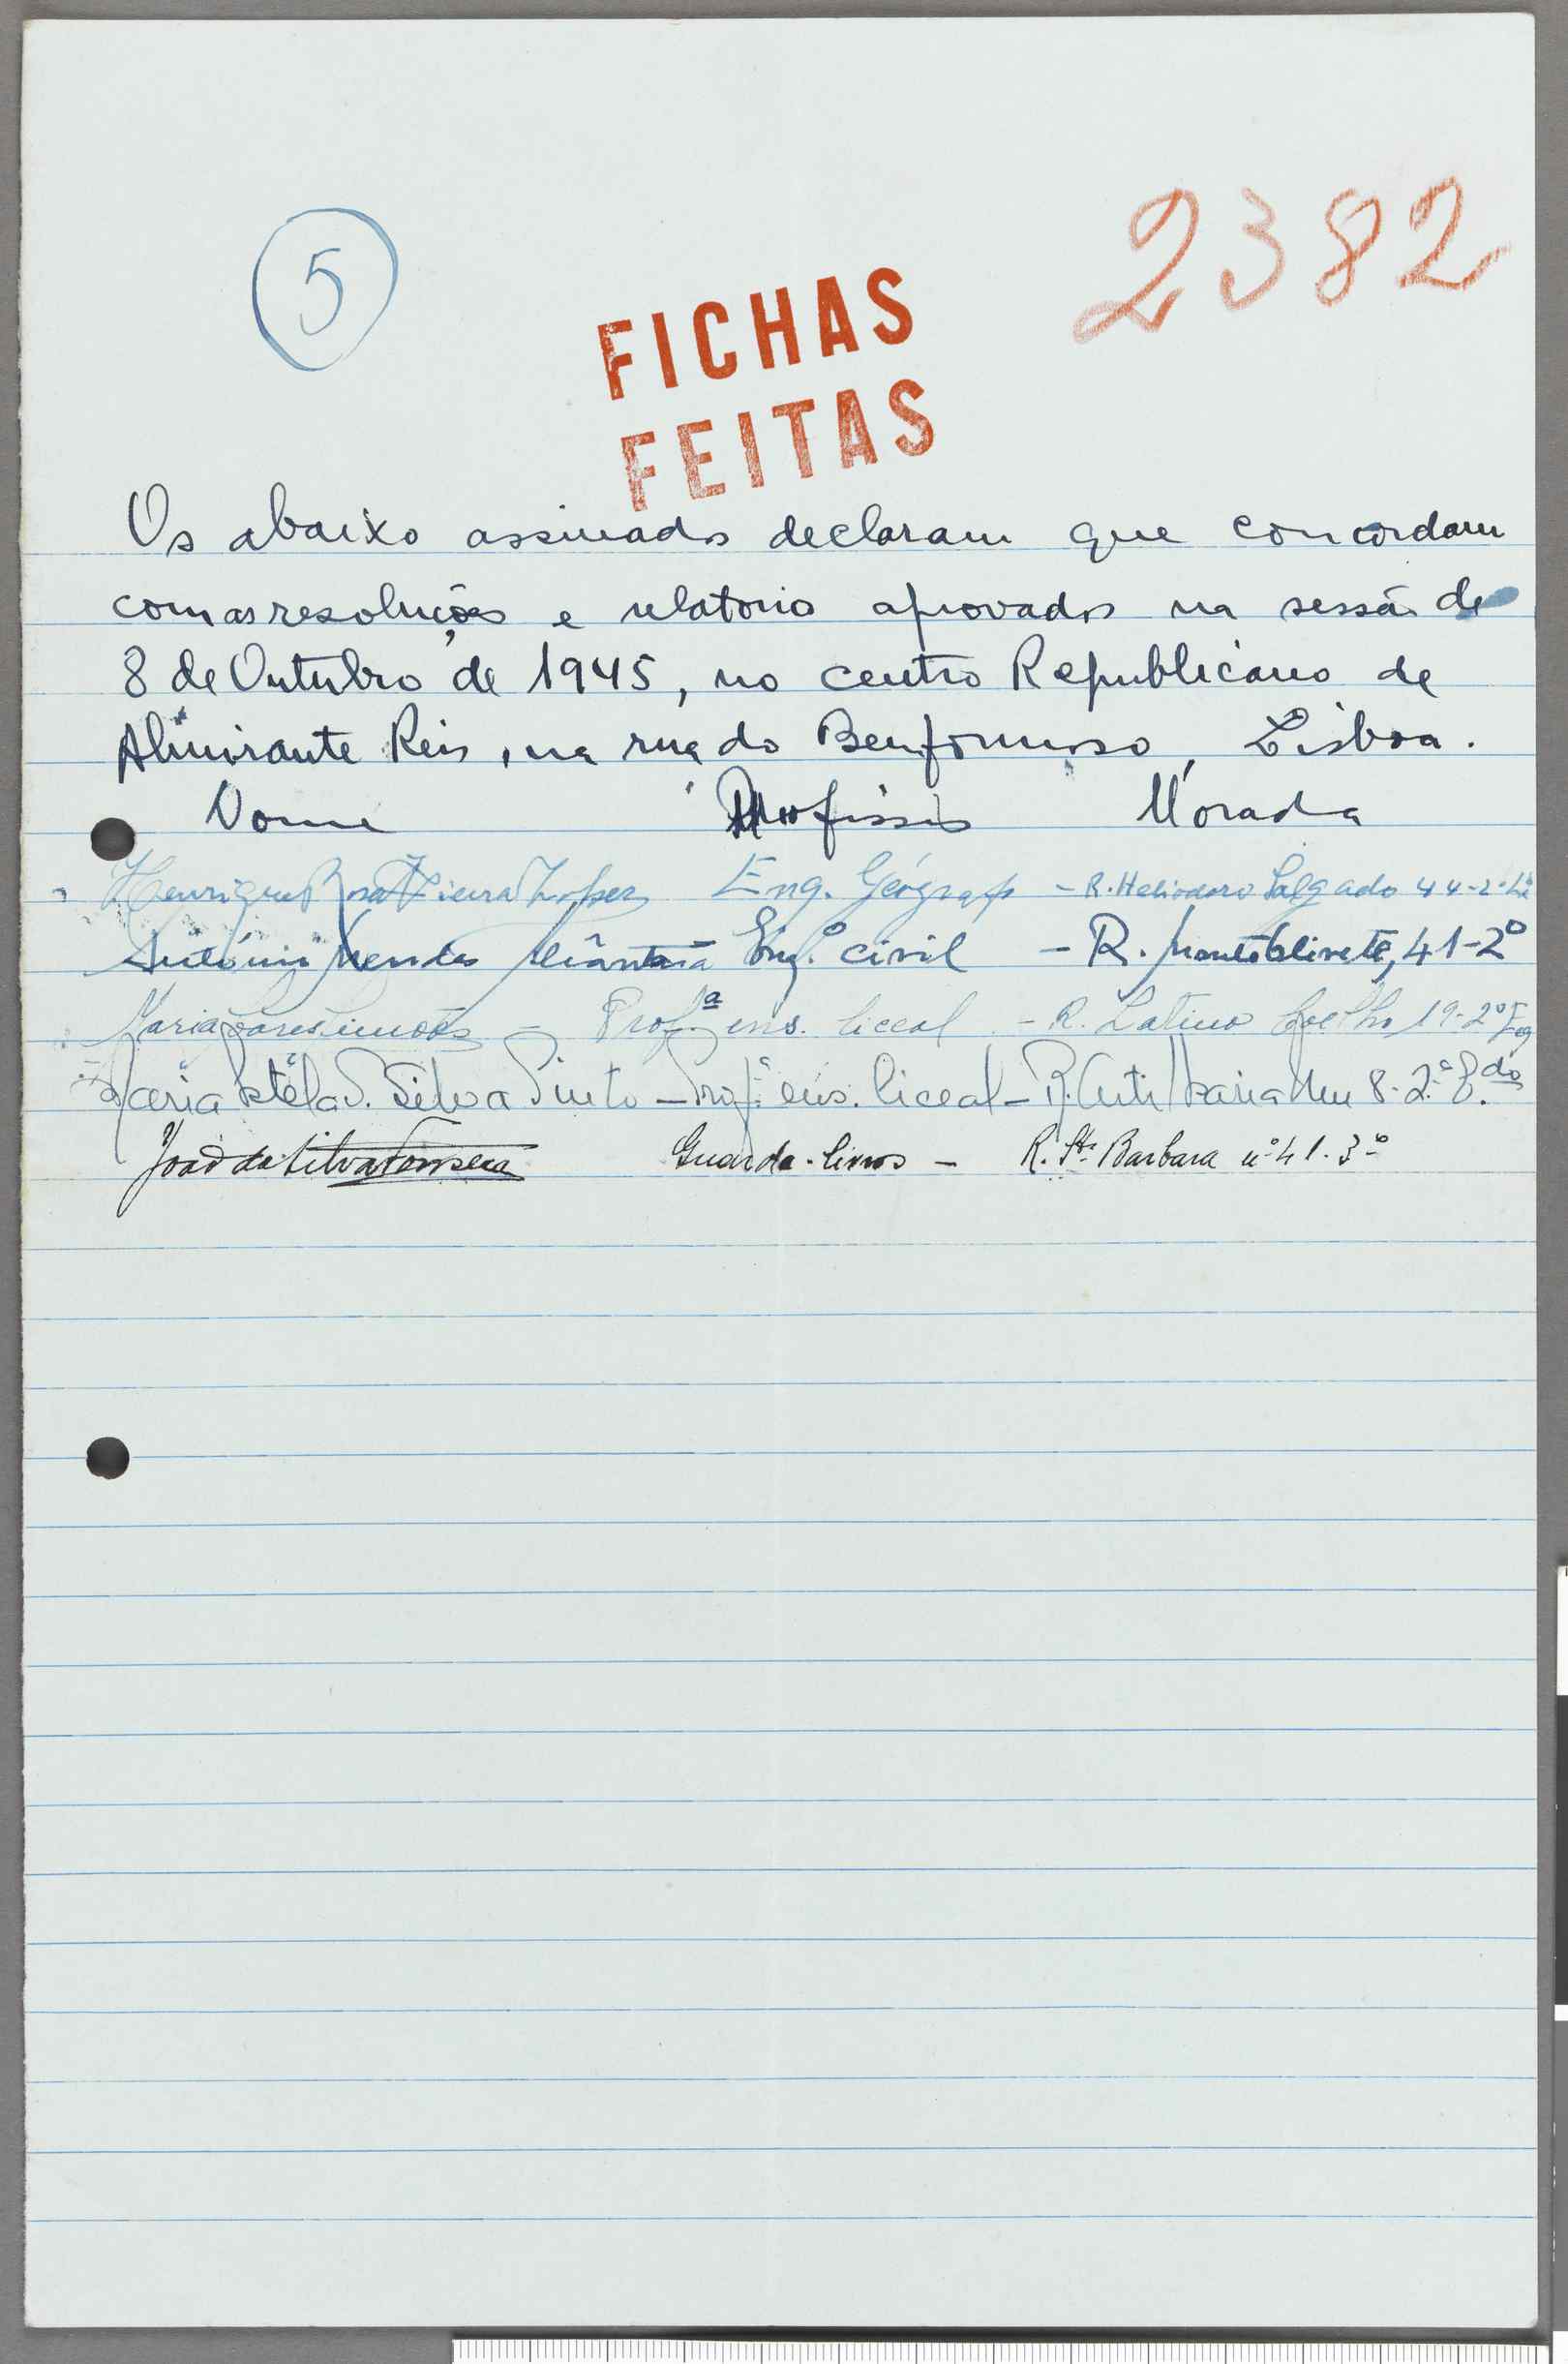 5
2382
FICHAS
FEITAS
Os abaixo assinados declaram que concordam
com as resoluções e relatorio aprovados na sessão de
8 de Outubro de 1945, no centro Republicano de
Almirante Reis, na rua do Benformoso, Lisboa.
Nome Profissão Morada
Henrique Rosa Vieira Lopes Eng. Geógrafo - R. Heliodoro Salgado 44-2º
António Mendes Eng.º civil - R. Monte Olivete, 41-2º
Maria Soares Simões - Prof.ª ens. liceal - R. Latino Coelho 19-2º Esq
Maria Stela S. Silva Pinto - Prof.ª ens. liceal - R. 8-2.º E.do
João da Silva Fonseca Guarda-livros - R. Sta Barbara nº 41-3º